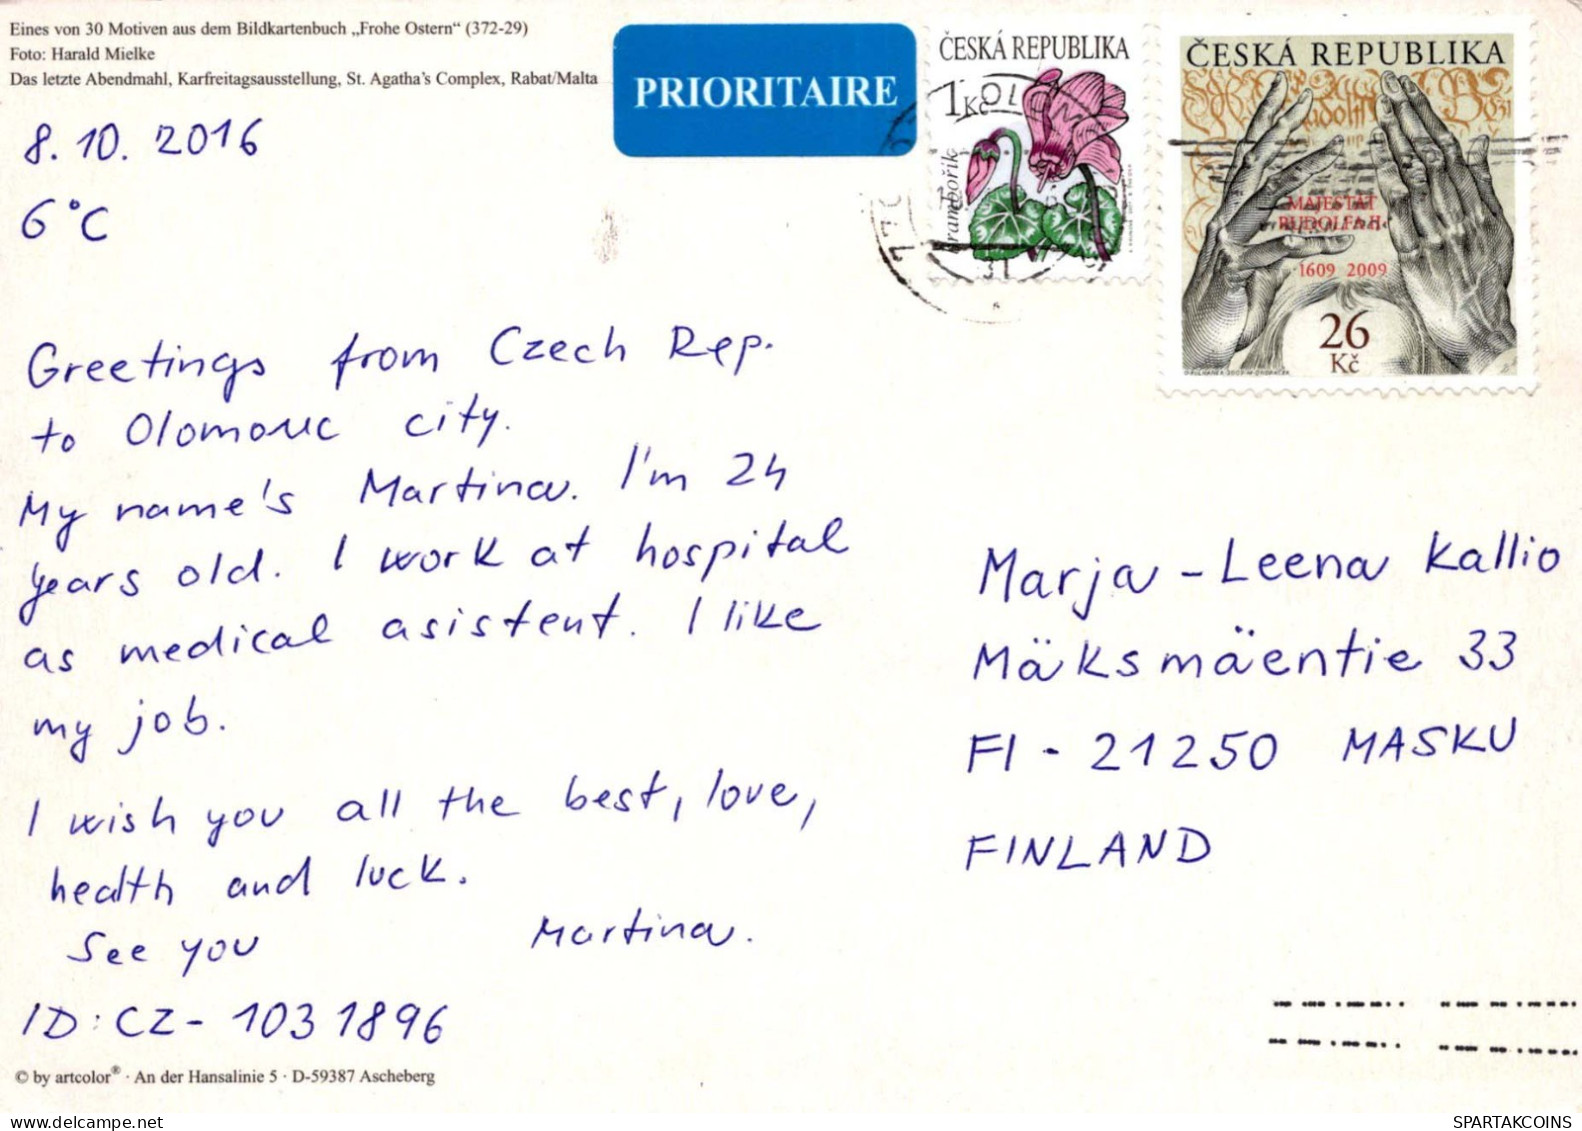 Eines von 30 Motiven aus dem Bildkartenbuch „Frohe Ostern“ (372-29)
Foto: Harald Mielke
Das letzte Abendmahl, Karfreitagsausstellung, St. Agatha's Complex, Rabat/Malta
PRIORITAIRE
ČESKÁ REPUBLIKA
1 Kč
ČESKÁ REPUBLIKA
MAJESTÁT
RUDOLFA II.
1609 2009
26
Kč
8. 10. 2016
6°C
Greetings from Czech Rep.
to Olomouc city.
My name's Martina. I'm 24
years old. I work at hospital
as medical asistent. I like
my job.
I wish you all the best, love,
health and luck.
See you Martina.
ID: CZ- 1031896
Marja-Leena Kallio
Mäksmäentie 33
FI - 21250 MASKU
FINLAND
© by artcolor® · An der Hansalinie 5 · D-59387 Ascheberg
SPARTAKCOINS